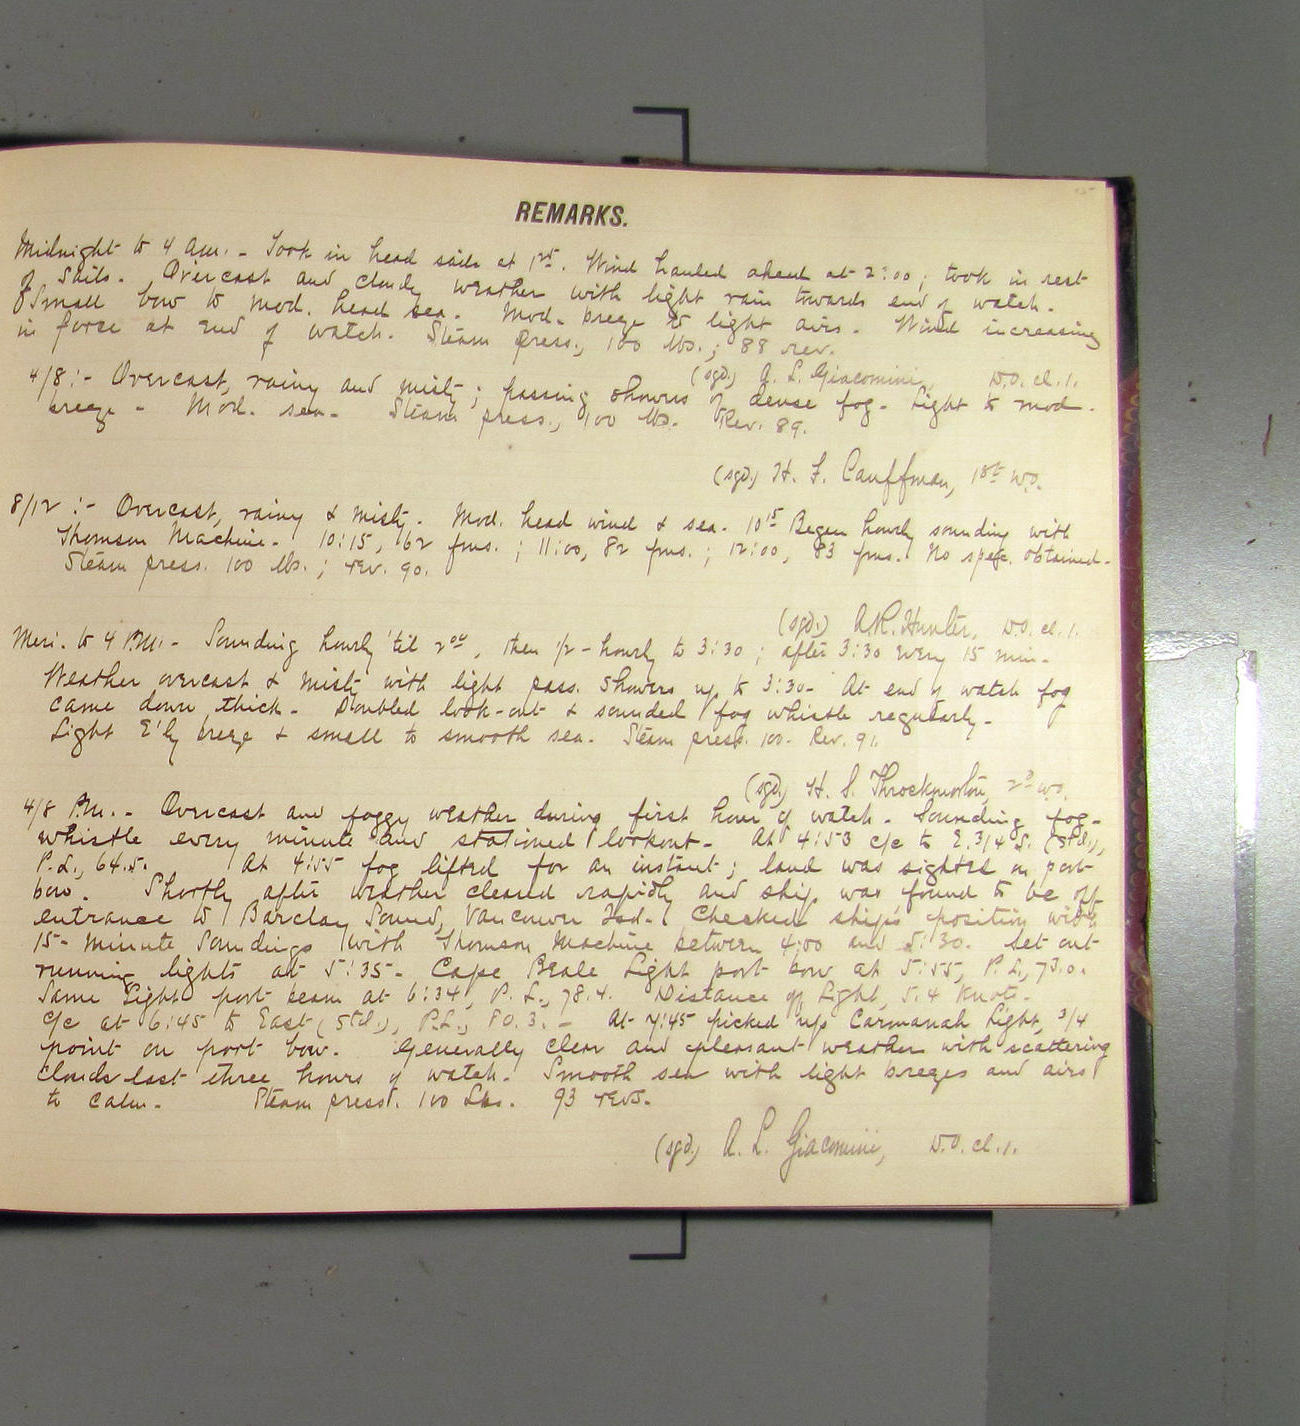 REMARKS.
Midnight to 4 a.m. - Took in head sails at 1st. Wind hauled ahead at 2:00; took in rest
of sails. Overcast and cloudy weather with light rain towards end of watch.
Small bow to mod. head sea. Mod. breeze to light airs. Wind increasing
in force at end of watch. Steam press., 100 lbs.; 88 rev.
(sgd.) A. L. Giacomini, W.O. cl. 1.
4/8:- Overcast, rainy and misty; passing showers of dense fog. Light to mod.
breeze - Mod. sea - Steam press., 100 lbs. Rev. 89.
(sgd.) H. F. Cauffman, 1st W.O.
8/12:- Overcast, rainy & misty. Mod. head wind & sea. 10 15 Began hourly sounding with
Thomson Machine. 10:15, 62 fms.; 11:00, 82 fms.; 12:00, 83 fms. No spec. obtained.
Steam press. 100 lbs.; rev. 90.
(sgd.) A.R. Hunter, W.O. cl. 1.
Meri. to 4 P.M. - Sounding hourly 'til 2 00, then 1/2-hourly to 3:30; after 3:30 every 15 min.
Weather overcast & misty with light pass. showers up to 3:30. At end of watch fog
came down thick. Doubled look-out & sounded fog whistle regularly.
Light E'ly breeze & small to smooth sea. Steam press. 100. Rev. 91.
(sgd.) H. S. Throckmorton, 2d W.O.
4/8 P.M. - Overcast and foggy weather during first hour of watch. Sounding fog-
whistle every minute and stationed lookout. At 4:53 c/c to E. 3/4 S. (Std.),
P.L., 64.5. At 4:55 fog lifted for an instant; land was sighted on port
bow. Shortly after weather cleared rapidly and ship was found to be off
entrance to Barclay Sound, Vancouver Isd. Checked ship's position with
15-minute soundings with Thomson Machine between 4:00 and 5:30. Set out
running lights at 5:35. Cape Beale Light port bow at 5:55, P.L., 73.0.
Same Light port beam at 6:34, P.L., 78.4. Distance off Light, 5.4 knots.
c/c at 6:45 to East (Std.), P.L., 80.3. - At 7:45 picked up Carmanah Light, 3/4
point on port bow. Generally clear and pleasant weather with scattering
clouds last three hours of watch. Smooth sea with light breezes and airs
to calm. Steam press. 100 Lbs. 93 revs.
(sgd.) A. L. Giacomini, W.O. cl. 1.